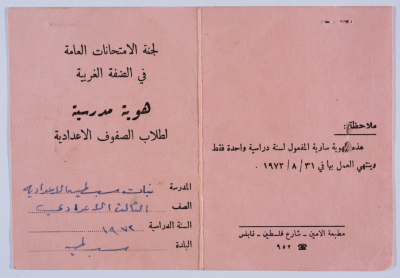 لجنة الامتحانات العامة
في الضفة الغربية
هوية مدرسية
لطلاب الصفوف الاعدادية
المدرسة بنات سبسطية الاعدادية
الصف الثالث الاعدادي
السنة الدراسية ١٩٧٢
البلدة
ملاحظة:
هذه الهوية سارية المفعول لسنة دراسية واحدة فقط
وينتهي العمل بها في ٣١ / ٨ / ١٩٧٢ .
مطبعة الامين - شارع فلسطين - نابلس
☎ ٩٥٢